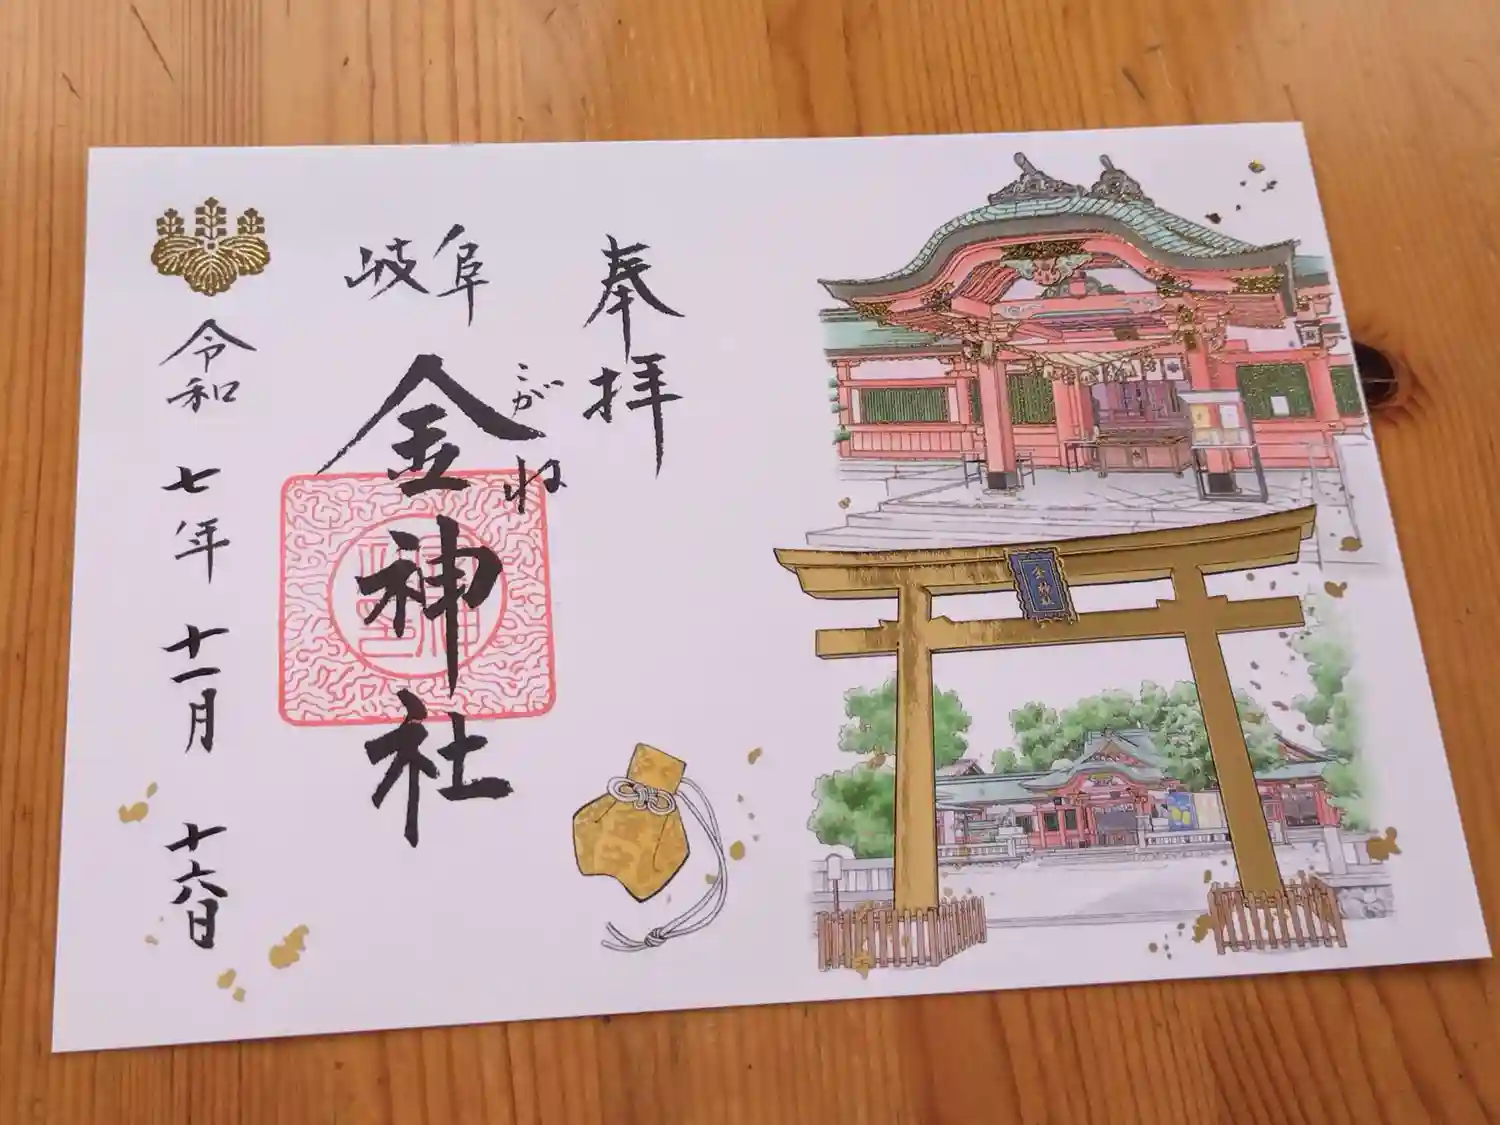 奉拝
岐阜
金神社
こがね
令和七年十一月十六日
金神社